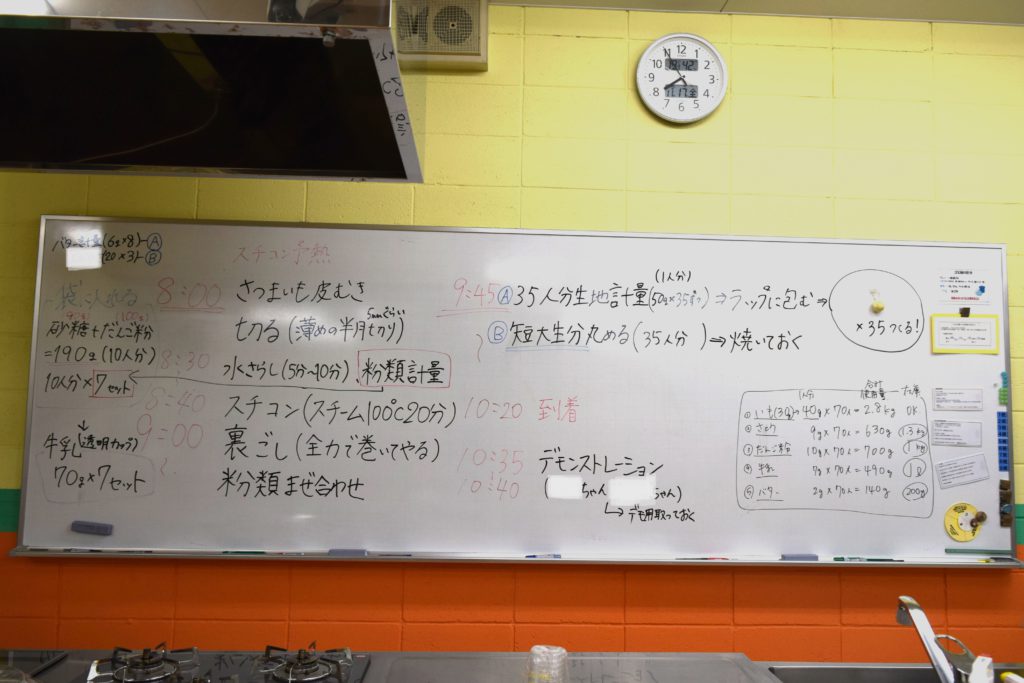 12:42
11.17金
バター計量(6g×8)-Ⓐ
(20×3)-Ⓑ
袋に入れる
90g (100g)
砂糖+だんご粉
=190g(10人分)
10人分×7セット
牛乳(透明カップ)
70g×7セット
スチコン予熱
8:00 さつまいも皮むき
5mmぐらい
切る(薄めの半月切り)
8:30 水さらし(5分~10分)、粉類計量
8:40 スチコン(スチーム100℃20分)
9:00 裏ごし(全力で巻いてやる)
粉類まぜ合わせ
(1人分)
9:45 Ⓐ35人分生地計量(50g×35ずつ)⇒ラップに包む⇒
Ⓑ短大生分丸める(35人分)⇒焼いておく
×35つくる!
10:20 到着
10:35 デモンストレーション
10:40 (ちゃん ちゃん)
↳デモ用取っておく
1人分 合計使用量 在庫
①いも(30) 40g×70人=2.8kg OK
②さとう 9g×70人=630g (1.3kg)
③だんご粉 10g×70人=700g (1kg)
④牛乳 7g×70人=490g (1ℓ)
⑤バター 2g×70人=140g (200g)